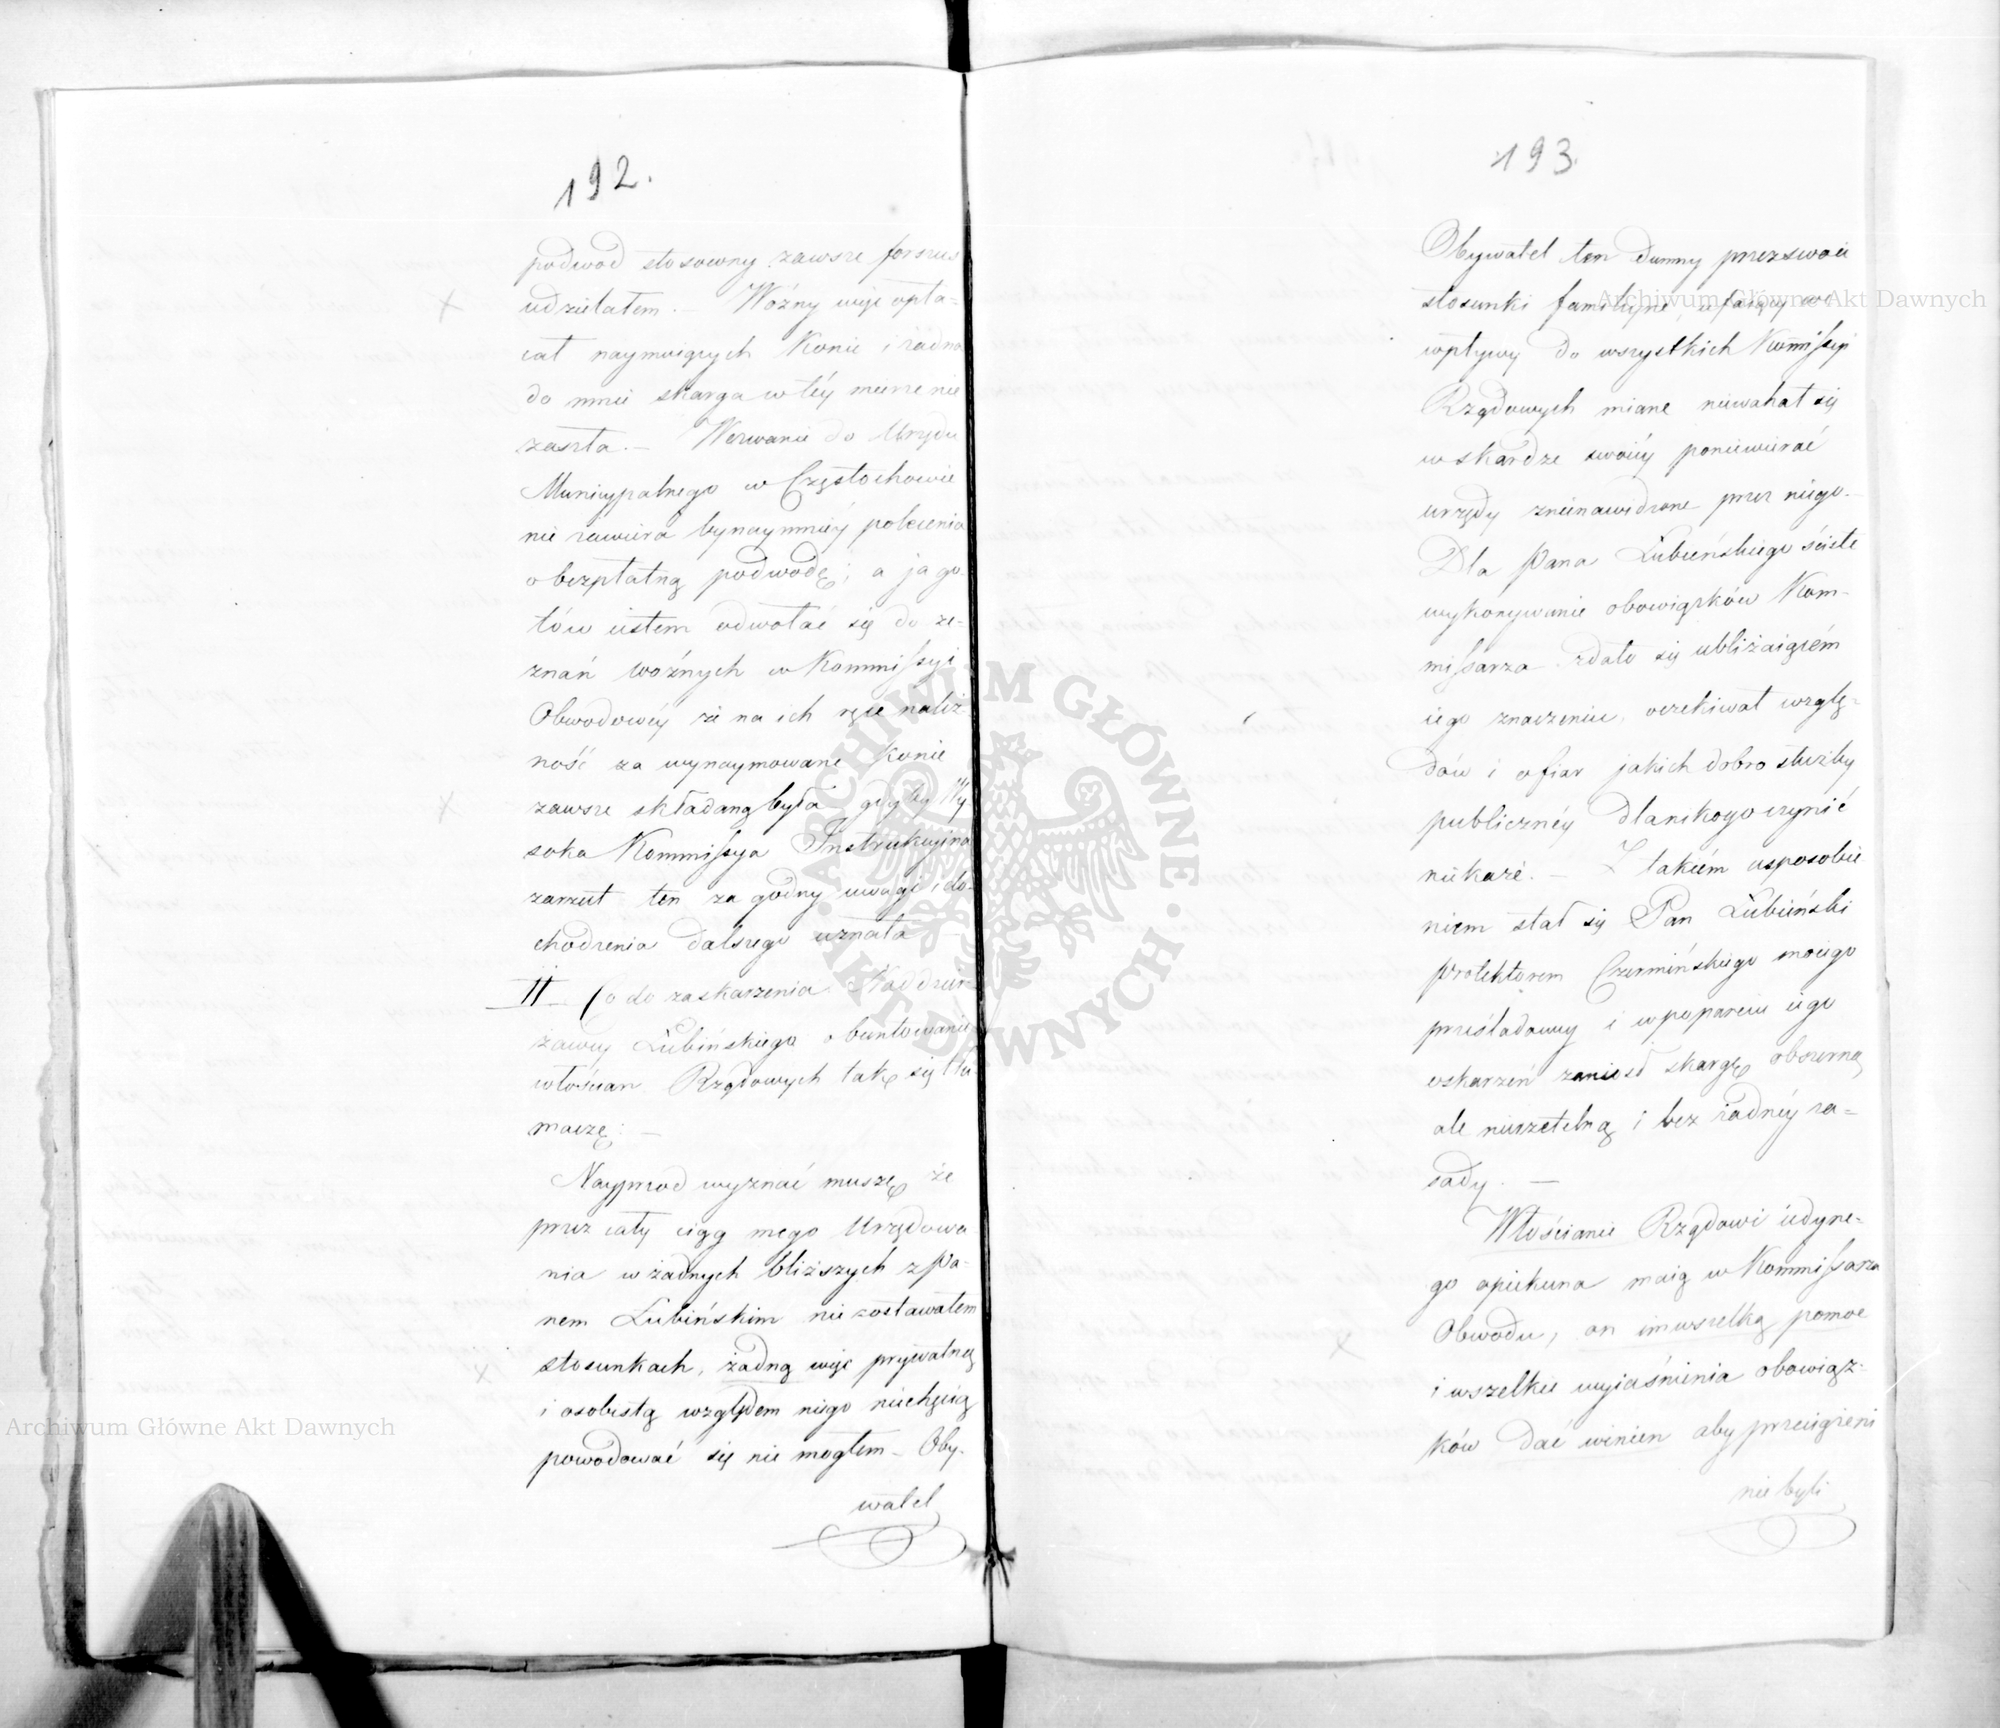 192.
podwod stosowny zawsze forszus
udzielałem. — Woźny więc opła=
cał naymuiących Konie i żadna
do mnie skarga w téy mierze nie
zaszła. — Wezwanie do Urzędu
Municypalnego w Częstochowie
nie zawiera bynaymniéy polecenia
o bezpłatną podwodę; a ja go-
tów iestem odwołać się do ze=
znań woźnych w Kommissyi
Obwodowéy że na ich ręce należ-
ność za wynaymowane Konie
zawsze składaną była gdyby Wy
soka Kommissya Instrukcyjna
zarzut ten za godny uwagi i do-
chodzenia dalszego uznała —
II Co do zaskarzenia Naddzier
żawcy Lubińskiego o buntowanie
włościan Rządowych tak się tłu
maczę: —
Nayprzod wyznać muszę że
przez cały ciąg mego Urzędowa
nia w żadnych bliższych z Pa-
nem Lubińskim nie zostawałem
stosunkach, żadną więc prywatną
i osobistą względem niego niechęcią
powodować się nie mogłem — Oby-
watel
193.
Obywatel ten dumny przez swoie
stosunki familijne, ufaiący we
wpływy do wszystkich Kommissyi
Rządowych miane niewahał się
w skardze swoiéy poniewierać
urzędy znienawidzone przez niego.
Dla Pana Lubieńskiego ściste
wykonywanie obowiązków Kom-
missarza zdało się ubliżaiącém
iego znaczeniu, oczekiwał wzglę-
dów i ofiar jakich dobro służby
publicznéy dla nikogo czynić
niekaże. — Z takiém usposobie
niem stał się Pan Lubieński
protektorem Czermińskiego moiego
prześladowcy i w poparciu iego
oskarzeń zaniosł skargę obszerną
ale nierzetelną i bez żadnéy za=
sady. —
Włościanie Rządowi iedyne-
go opiekuna maią w Kommissarzu
Obwodu, on im wszelką pomoc
i wszelkie wyiaśnienia obowiąz-
ków dać winien aby przeciążeni
nie byli
Archiwum Główne Akt Dawnych
Archiwum Główne Akt Dawnych
ARCHIWUM GŁÓWNE · AKT DAWNYCH ·